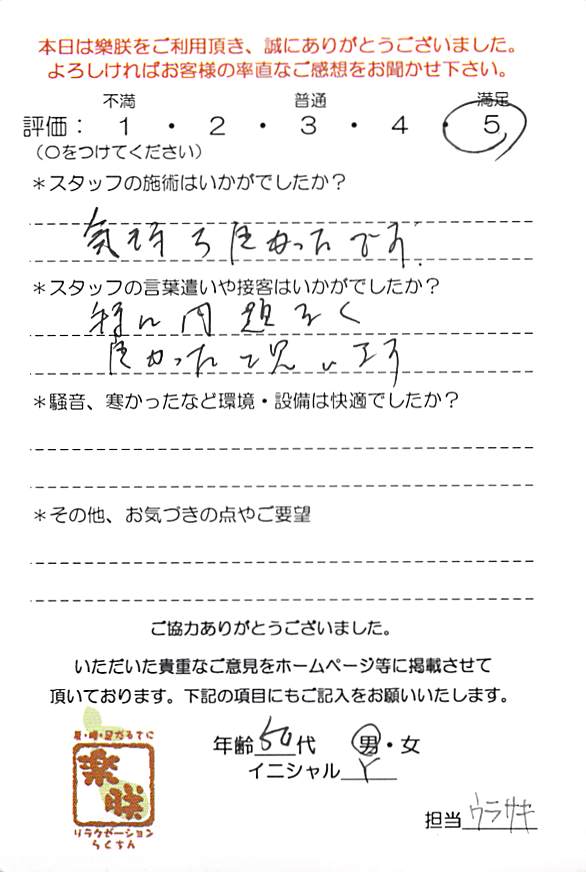 本日は樂朕をご利用頂き、誠にありがとうございました。
よろしければお客様の率直なご感想をお聞かせ下さい。
不満 普通 満足
評価： 1 ・ 2 ・ 3 ・ 4 ・ 5
（○をつけてください）
＊スタッフの施術はいかがでしたか？
気持ち良かったです。
＊スタッフの言葉遣いや接客はいかがでしたか？
特に問題なく
良かったと思います
＊騒音、寒かったなど環境・設備は快適でしたか？
＊その他、お気づきの点やご要望
ご協力ありがとうございました。
いただいた貴重なご意見をホームページ等に掲載させて
頂いております。下記の項目にもご記入をお願いいたします。
年齢 50 代 男・女
イニシャル Y
担当 ウラサキ
樂朕
リラクゼーション
らくちん